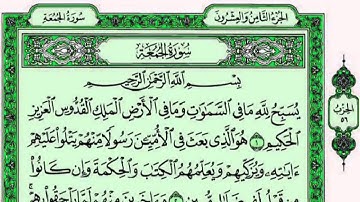 الجزء الثامن والعشرون
سورة الجمعة
سُورَةُ الجُمُعَةِ
بِسْمِ اللَّهِ الرَّحْمَٰنِ الرَّحِيمِ
يُسَبِّحُ لِلَّهِ مَا فِي السَّمَٰوَٰتِ وَمَا فِي الْأَرْضِ الْمَلِكِ الْقُدُّوسِ الْعَزِيزِ
الْحَكِيمِ ١ هُوَ الَّذِي بَعَثَ فِي الْأُمِّيِّينَ رَسُولًا مِّنْهُمْ يَتْلُوا عَلَيْهِمْ
ءَايَٰتِهِ وَيُزَكِّيهِمْ وَيُعَلِّمُهُمُ الْكِتَٰبَ وَالْحِكْمَةَ وَإِن كَانُوا
الحزب
٥٦